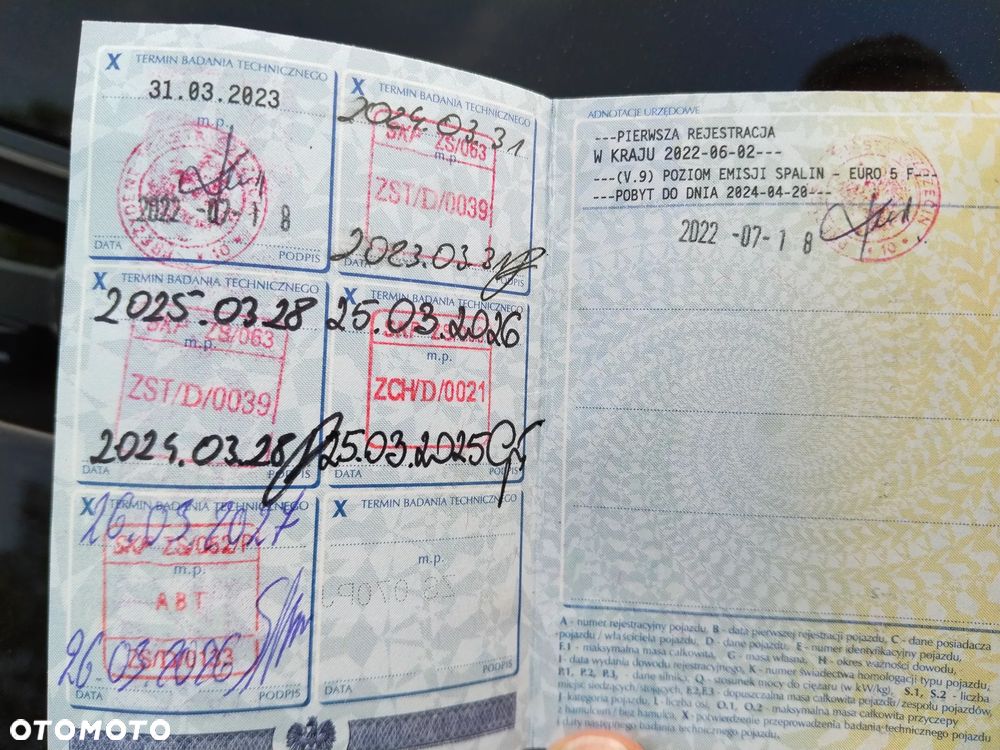 X TERMIN BADANIA TECHNICZNEGO
31.03.2023
m.p.
2022 -07-18
DATA
PODPIS
X TERMIN BADANIA TECHNICZNEGO
2024.03.31
SKP ZS/063
m.p.
ZST/D/0039
2023.03.31
DATA
PODPIS
X TERMIN BADANIA TECHNICZNEGO
2025.03.28
SKP ZS/063
m.p.
ZST/D/0039
2024.03.28
DATA
PODPIS
X TERMIN BADANIA TECHNICZNEGO
25.03.2026
SKP
m.p.
ZCH/D/0021
25.03.2025
DATA
PODPIS
X TERMIN BADANIA TECHNICZNEGO
26.03.2027
SKP ZS/052/P
m.p.
ABT
ZS/D/0133
26.03.2026
DATA
PODPIS
X TERMIN BADANIA TECHNICZNEGO
m.p.
DATA
PODPIS
ADNOTACJE URZĘDOWE
---PIERWSZA REJESTRACJA
W KRAJU 2022-06-02---
---(V.9) POZIOM EMISJI SPALIN - EURO 5 F---
---POBYT DO DNIA 2024-04-20---
2022 -07-18
A - numer rejestracyjny pojazdu, B - data pierwszej rejestracji pojazdu, C - dane posiadacza
pojazdu / właściciela pojazdu, D - dane pojazdu, E - numer identyfikacyjny pojazdu,
F.1 - maksymalna masa całkowita, G - masa własna, H - okres ważności dowodu,
I - data wydania dowodu rejestracyjnego, K - numer świadectwa homologacji typu pojazdu,
P.1, P.2, P.3, - dane silnika, Q - stosunek mocy do ciężaru (w kW/kg), S.1, S.2 - liczba
miejsc siedzących/stojących, F.2,F.3 - dopuszczalna masa całkowita pojazdu/zespołu pojazdów,
J - kategoria pojazdu, L - liczba osi, O.1, O.2 - maksymalna masa całkowita przyczepy
z hamulcem / bez hamulca, X - potwierdzenie przeprowadzenia badania technicznego pojazdu
i daty następnego badania technicznego pojazdu.
OTOMOTO